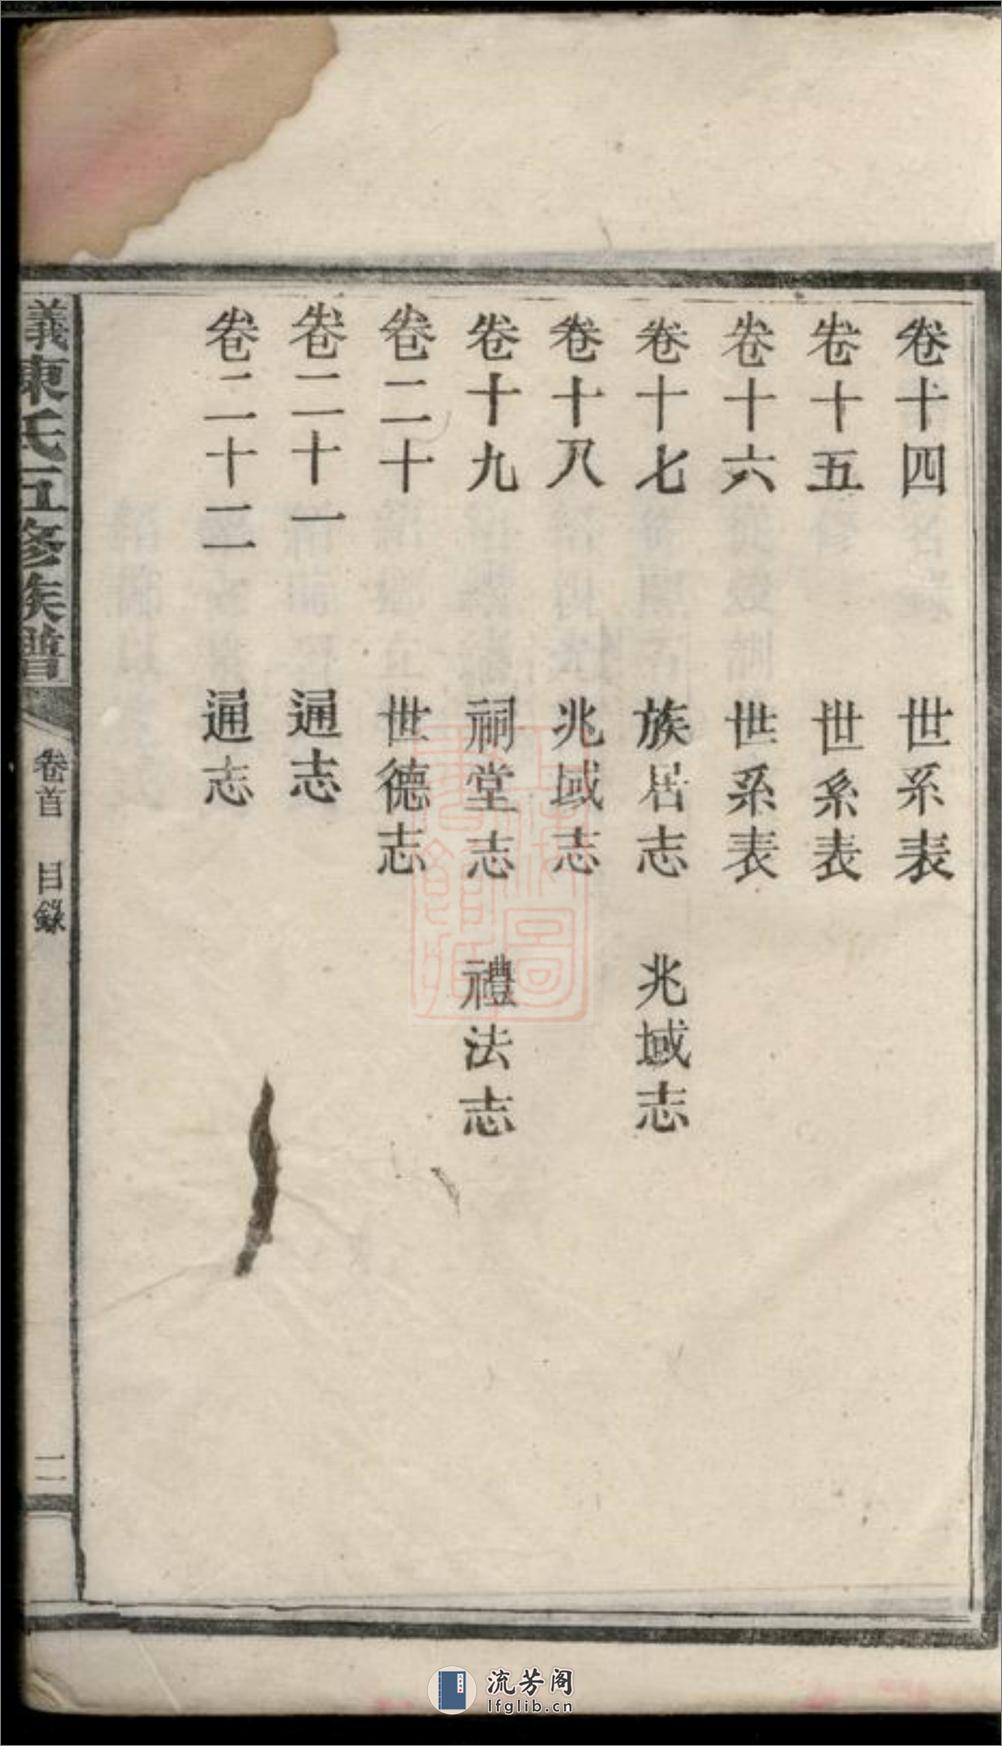 卷十四 世系表
卷十五 世系表
卷十六 世系表
卷十七 族居志 兆域志
卷十八 兆域志
卷十九 祠堂志 禮法志
卷二十 世德志
卷二十一 通志
卷二十二 通志
義陳氏五修族譜 卷首 目錄 二
上海圖書館藏
流芳阁
lfglib.cn